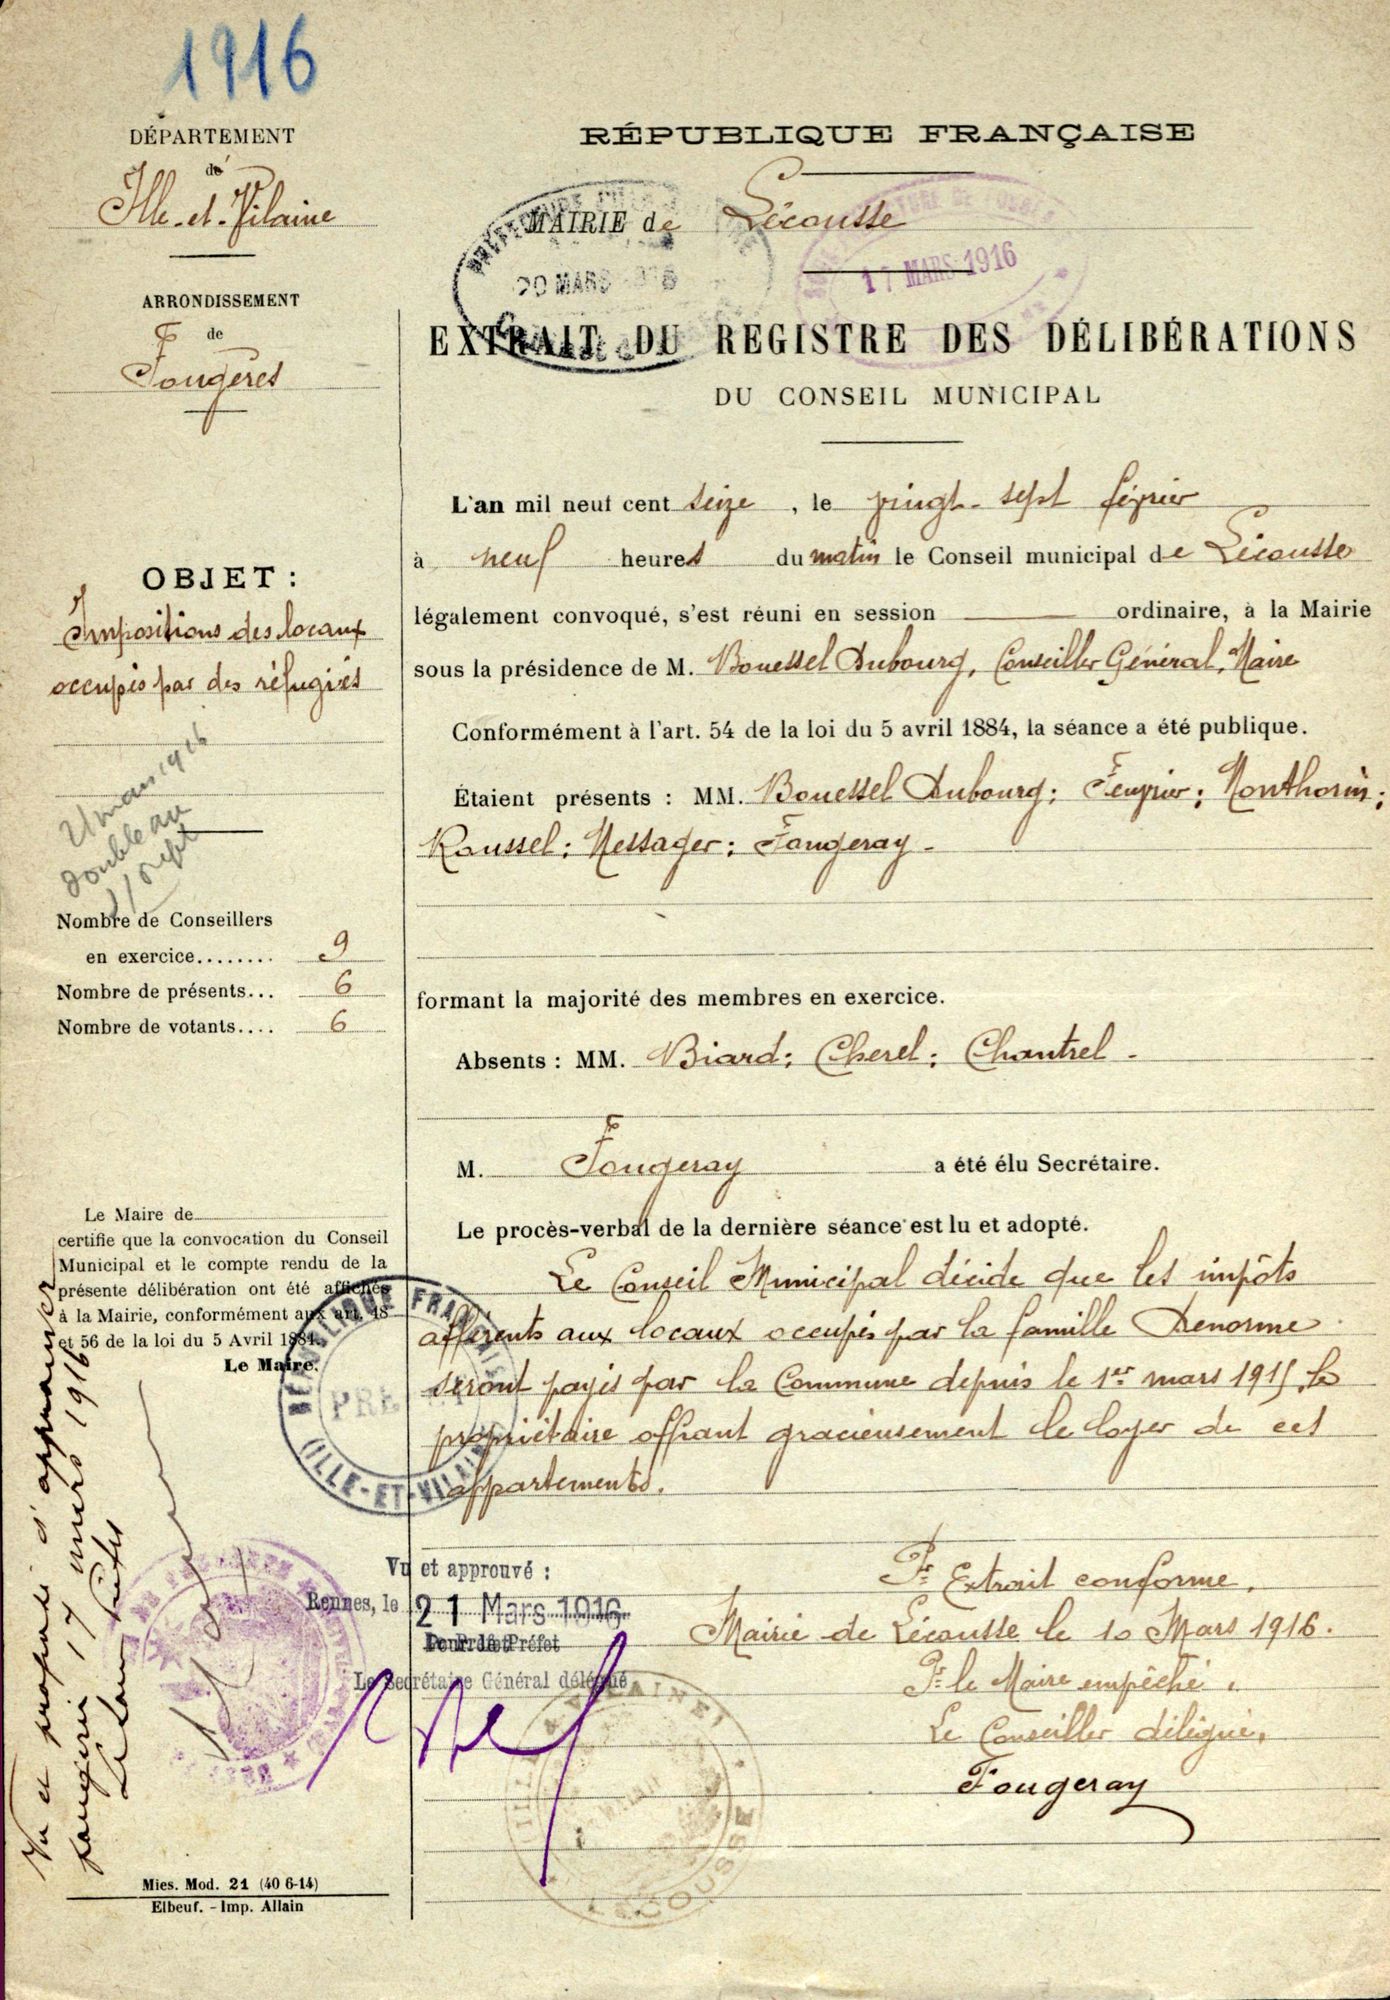 1916
DÉPARTEMENT
de
Ille-et-Vilaine
ARRONDISSEMENT
de
Fougères
OBJET :
Impositions des locaux
occupés par des réfugiés
mars 1916
double au
s/ préft
Nombre de Conseillers
en exercice........ 9
Nombre de présents... 6
Nombre de votants.... 6
Le Maire de
certifie que la convocation du Conseil
Municipal et le compte rendu de la
présente délibération ont été affichés
à la Mairie, conformément aux art. 48
et 56 de la loi du 5 Avril 1884.
Le Maire.
Vu et proposé d'approuver
Fougères 17 mars 1916
Le Sous Préfet
Mies. Mod. 21 (40 6-14)
Elbeuf. - Imp. Allain
RÉPUBLIQUE FRANÇAISE
MAIRIE de Lécousse
20 MARS 1916
17 MARS 1916
EXTRAIT DU REGISTRE DES DÉLIBÉRATIONS
DU CONSEIL MUNICIPAL
L'an mil neuf cent seize, le vingt-sept février
à neuf heures du matin le Conseil municipal de Lécousse
légalement convoqué, s'est réuni en session ordinaire, à la Mairie
sous la présidence de M. Bouessel Dubourg, Conseiller Général, Maire
Conformément à l'art. 54 de la loi du 5 avril 1884, la séance a été publique.
Étaient présents : MM. Bouessel Dubourg; Feuvrier; Monthorin;
Roussel; Messager; Fougeray -
formant la majorité des membres en exercice.
Absents : MM. Biard; Cherel; Chantrel -
M. Fougeray a été élu Secrétaire.
Le procès-verbal de la dernière séance est lu et adopté.
Le Conseil Municipal décide que les impôts
afférents aux locaux occupés par la famille Denorme
seront payés par la Commune depuis le 1er mars 1915, le
propriétaire offrant gracieusement le loyer de ces
appartements.
RÉPUBLIQUE FRANÇAISE
(ILLE-ET-VILAINE)
Vu et approuvé :
Rennes, le 21 Mars 1916
Pour le Préfet
Le Secrétaire Général délégué
Pr Extrait conforme.
Mairie de Lécousse le 10 Mars 1916.
Pr le Maire empêché.
Le Conseiller délégué,
Fougeray
LECOUSSE